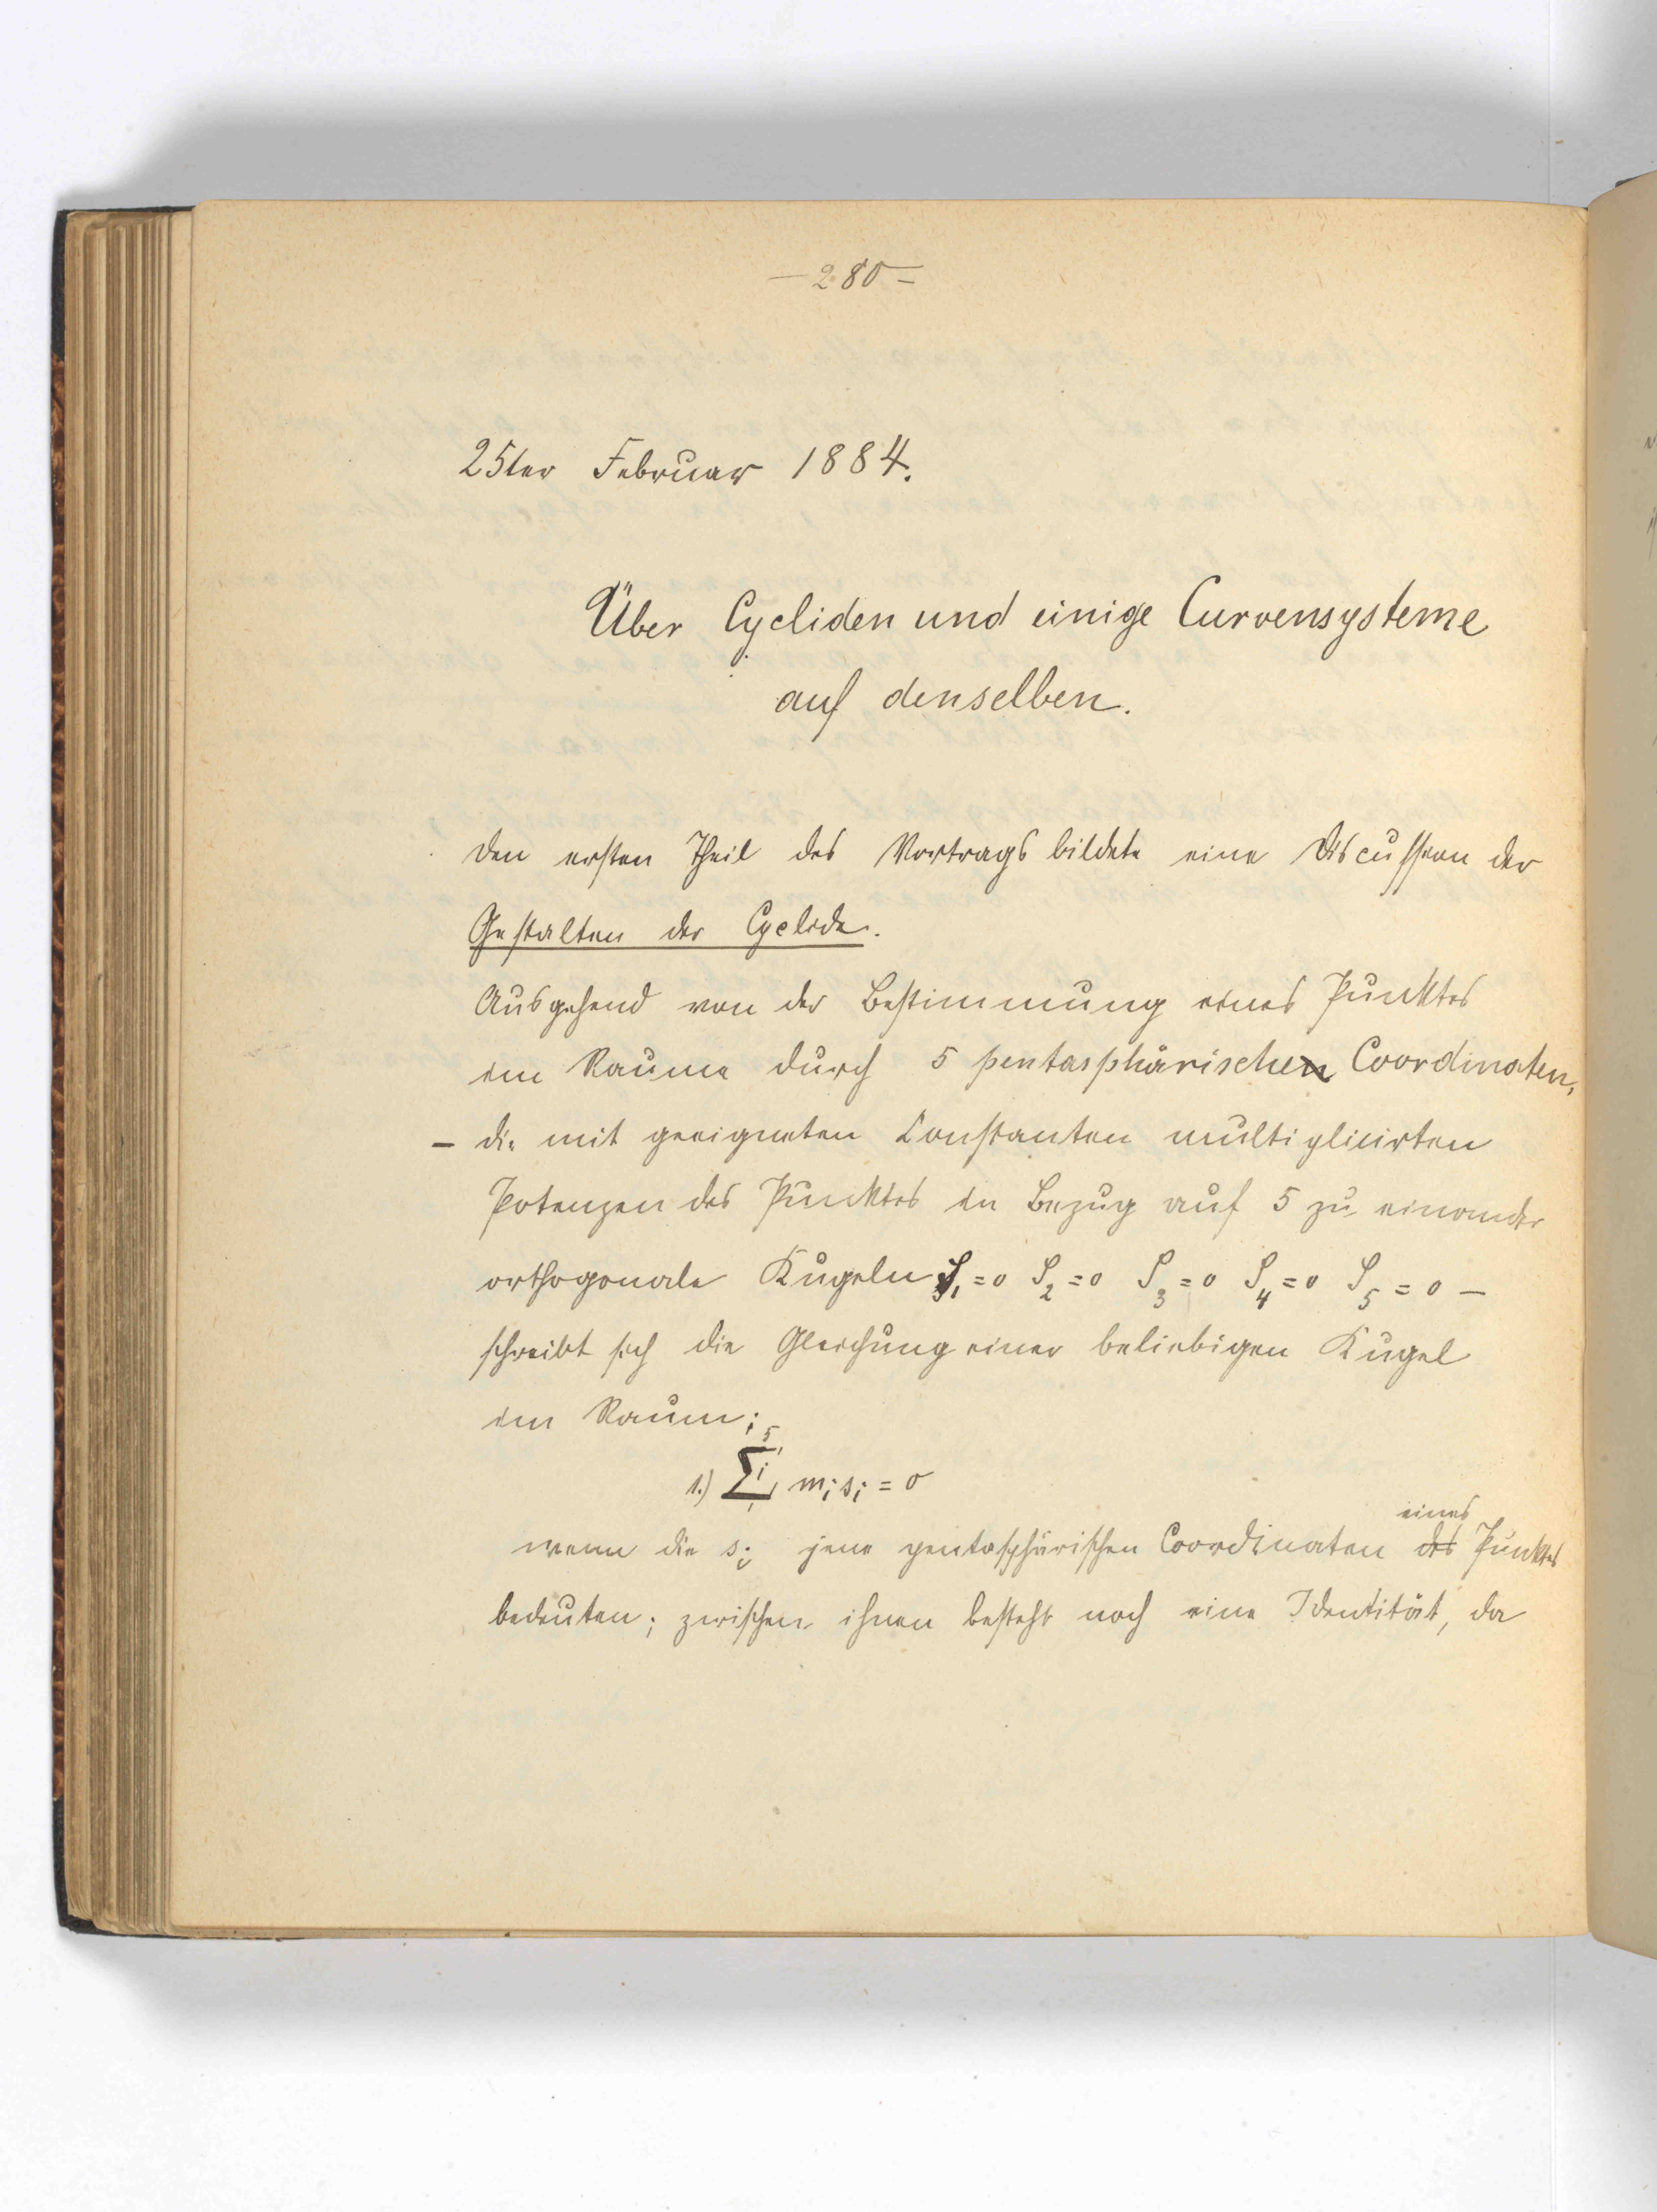 — 280 —
25ter Februar 1884.
Über Cycliden und einige Curvensysteme
auf denselben.
Den ersten Theil des Vortrags bildete eine Discussion der
Gestalten der Cyclide.
Ausgehend von der Bestimmung eines Punktes
im Raume durch 5 pentasphärischen Coordinaten,
– die mit geeigneten Constanten multiplicirten
Potenzen des Punktes in Bezug auf 5 zu einander
orthogonale Kugeln S₁=0 S₂=0 S₃=0 S₄=0 S₅=0 –
schreibt sich die Gleichung einer beliebigen Kugel
im Raum:
1.) ⁵∑ᵢ₁ mᵢsᵢ = 0
eines
wenn die sᵢ jene pentasphärischen Coordinaten des Punktes
bedeuten; zwischen ihnen besteht noch eine Identität, da